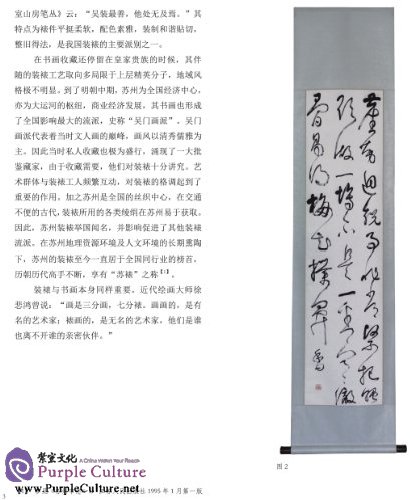 室山房笔丛》云：“吴装最善，他处无及焉。”其
特点为裱件平挺柔软，配色素雅，装制和谐贴切，
整旧得法，是我国装裱的主要派别之一。
在书画收藏还停留在皇家贵族的时候，其伴
随的装裱工艺取向多局限于上层精英分子，地域风
格极不明显。到了明朝中期，苏州为全国经济中心，
亦为大运河的枢纽，商业经济发展。其书画也形成
了全国影响最大的流派，史称“吴门画派”。吴门
画派代表着当时文人画的巅峰，画风以清秀儒雅为
主。因此当时私人收藏也极为盛行，涌现了一大批
鉴藏家，由于收藏需要，他们对装裱十分讲究。艺
术群体与装裱工人频繁互动，对装裱的格调起到了
重要的作用。加之苏州是全国的丝织中心，在交通
不便的古代，装裱所用的各类绫绢在苏州易于获取。
因此，苏州装裱举国闻名，并影响促进了其他装裱
流派。在苏州地理资源环境及人文环境的长期熏陶
下，苏州的装裱至今一直居于全国同行业的榜首。
历朝历代高手不断，享有“苏裱”之称【1】。
装裱与书画本身同样重要。近代绘画大师徐
悲鸿曾说：“画是三分画，七分裱。画画的，是有
名的艺术家；裱画的，是无名的艺术家，他们是谁
也离不开谁的亲密伙伴。”
塵勞迴脱事非常緊把繩
頭做一場不是一番寒徹
骨爭得梅花撲鼻香
图2
社1995年1月第一版
3
紫宸文化 A China Within Your Reach
Purple Culture
www.PurpleCulture.net